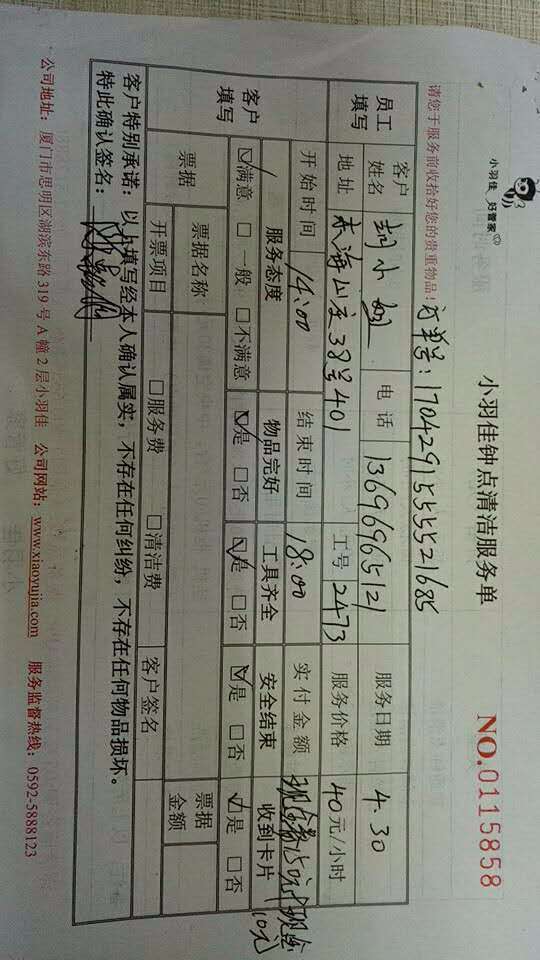 小羽佳 好管家
小羽佳钟点清洁服务单
NO.0115858
请您于服务前收拾好您的贵重物品!
订单号:170429155555521685
员工填写 客户姓名 小 电话 13696965121 服务日期 4.30
地址 东海山庄38号401 工号 2473 服务价格 40元/小时
客户填写 开始时间 14:00 结束时间 18:00 实付金额 150元 现金10元
服务态度 物品完好 工具齐全 安全结束 收到卡片
☑满意 □一般 □不满意 ☑是 □否 ☑是 □否 ☑是 □否 ☑是 □否
票据 票据名称 票据金额
开票项目 □服务费 □清洁费 客户签名
客户特别承诺:以上填写经本人确认属实,不存在任何纠纷,不存在任何物品损坏。
特此确认签名:
公司地址:厦门市思明区湖滨东路319号A幢2层小羽佳 公司网站:www.xiaoyujia.com 服务监督热线:0592-5888123